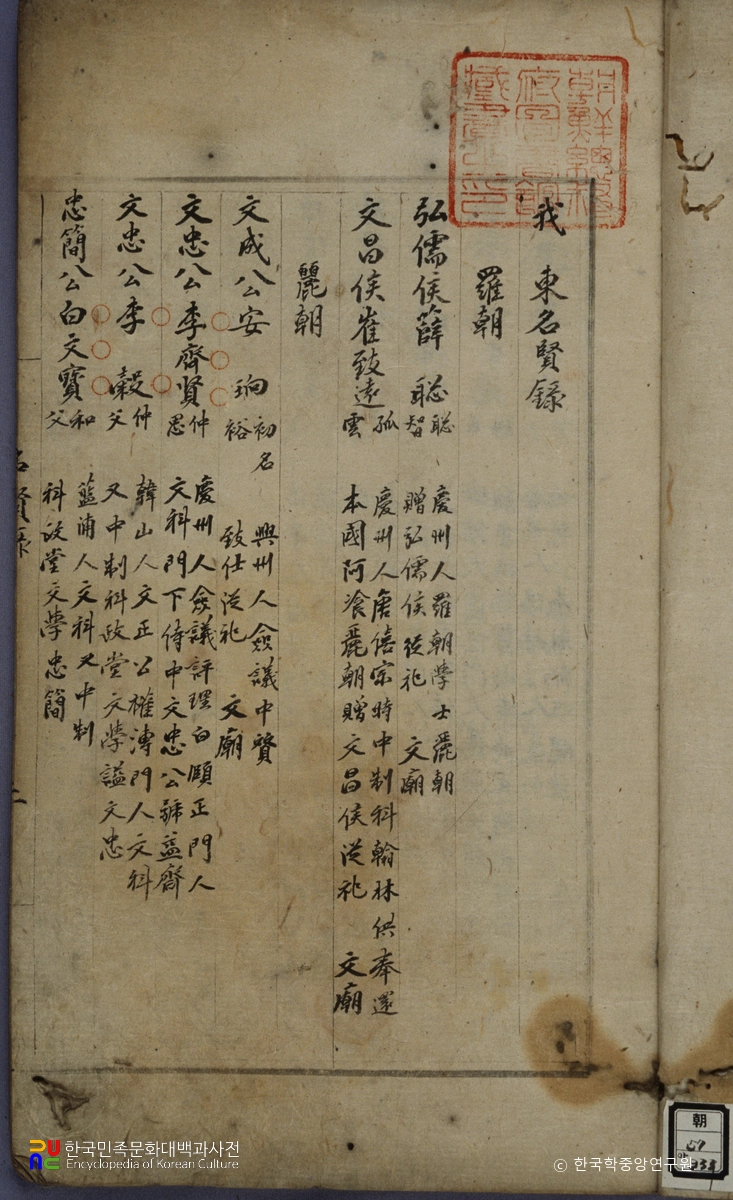 朝鮮總督
府圖書館
藏書之印
我東名賢錄
羅朝
弘儒侯薛聰 聰智 慶州人羅朝學士麗朝
贈弘儒侯從祀 文廟
文昌侯崔致遠 孤雲 慶州人唐僖宗時中制科翰林供奉還
本國阿飡麗朝贈文昌侯從祀 文廟
麗朝
文成公安珦 初名裕 興州人僉議中贊
致仕從祀 文廟
文忠公李齊賢 仲思 慶州人僉議評理白頤正門人
文科門下侍中文忠公號益齋
文忠公李穀 仲父 韓山人文正公權溥門人文科
又中制科政堂文學謚文忠
忠簡公白文寶 和父 藍浦人文科又中制
科政堂文學忠簡
名賢錄
朝
한국민족문화대백과사전
Encyclopedia of Korean Culture
© 한국학중앙연구원